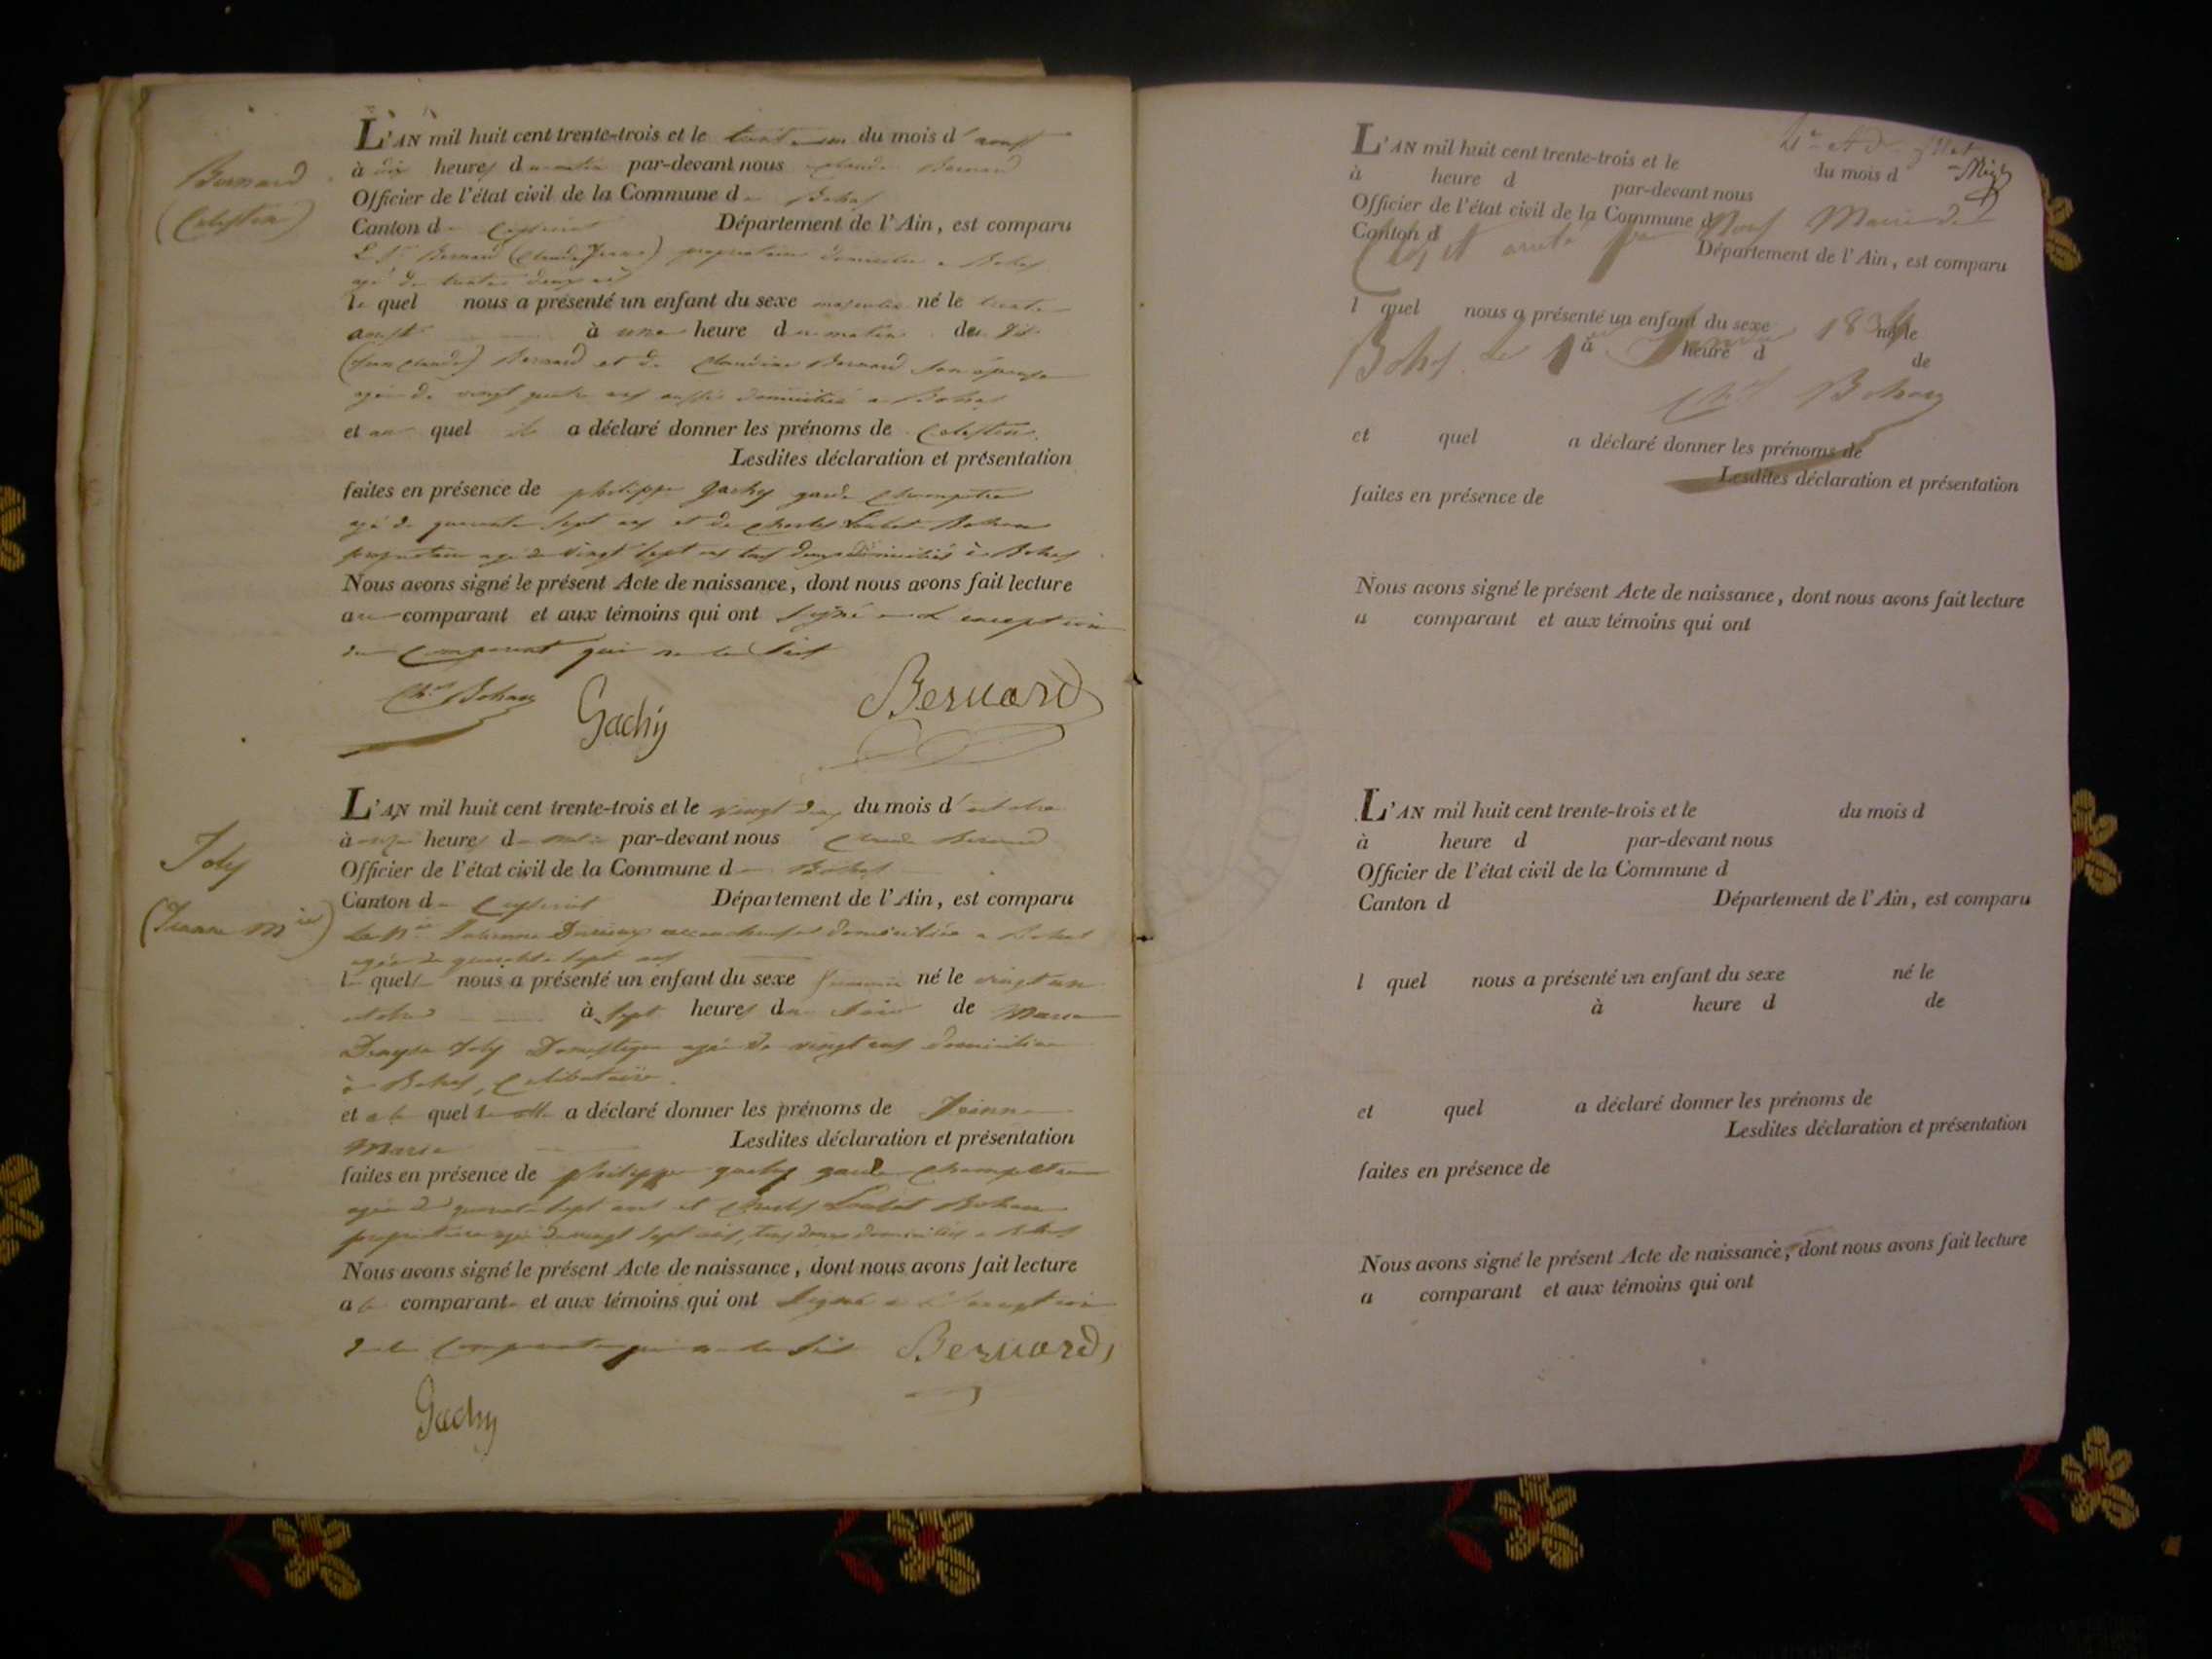 Bernard
(Celestin)
L'AN mil huit cent trente-trois et le trente un du mois d'aoust
à dix heures du matin par-devant nous Claude Bernard
Officier de l'état civil de la Commune de Bohas
Canton de Ceyzeriat Département de l'Ain, est comparu
Le Sr Bernard (Claude ) propriétaire domicilié a Bohas
agé de trente deux ans
le quel nous a présenté un enfant du sexe masculin né le trente
aoust à une heure du matin du dit
(Jean Claude) Bernard et de Claudine Bernard son épouse
agée de vingt quatre ans aussi domiciliée a Bohas
et au quel il a déclaré donner les prénoms de Celestin.
Lesdites déclaration et présentation
faites en présence de philippe Gachy garde Champetre
agé de quarante sept ans et de Charles Loubat Bohan
propriétaire agé de vingt sept ans tous deux domiciliés à Bohas
Nous avons signé le présent Acte de naissance, dont nous avons fait lecture
au comparant et aux témoins qui ont signé a l'exception
du Comparant qui ne le sait
Ch.s Bohan Gachy Bernard
Joly
(Jeanne Mie)
L'AN mil huit cent trente-trois et le vingt deux du mois d'octobre
à heures du matin par-devant nous Claude Bernard
Officier de l'état civil de la Commune de Bohas
Canton de Ceyzeriat Département de l'Ain, est comparu
accoucheuse domiciliée a Bohas
agée de quarante sept ans
la quelle nous a présenté un enfant du sexe feminin né le vingt un
octobre à sept heures du soir de Marie
Denyse Joly Domestique agée de vingt ans domiciliée
à Bohas, Celibataire.
et a la quelle elle a déclaré donner les prénoms de Jeanne
Marie Lesdites déclaration et présentation
faites en présence de philippe gachy garde Champetre
agé de quarante sept ans et Charles Loubat Bohan
propriétaire agé de vingt sept ans, tous deux domiciliés a Bohas
Nous avons signé le présent Acte de naissance, dont nous avons fait lecture
a la comparante et aux témoins qui ont signé a l'exception
de la Comparante qui ne le sait Bernard
Gachy
L'AN mil huit cent trente-trois et le du mois d
à heure d par-devant nous
Officier de l'état civil de la Commune d
Canton d Département de l'Ain, est comparu
Clos et arreté par Nous Maire de
l quel nous a présenté un enfant du sexe né le
à heure d de
Bohas le 1er Janvier 1834
Chs Bohan
et quel a déclaré donner les prénoms de
Lesdites déclaration et présentation
faites en présence de
Nous avons signé le présent Acte de naissance, dont nous avons fait lecture
a comparant et aux témoins qui ont
L'AN mil huit cent trente-trois et le du mois d
à heure d par-devant nous
Officier de l'état civil de la Commune d
Canton d Département de l'Ain, est comparu
l quel nous a présenté un enfant du sexe né le
à heure d de
et quel a déclaré donner les prénoms de
Lesdites déclaration et présentation
faites en présence de
Nous avons signé le présent Acte de naissance, dont nous avons fait lecture
a comparant et aux témoins qui ont